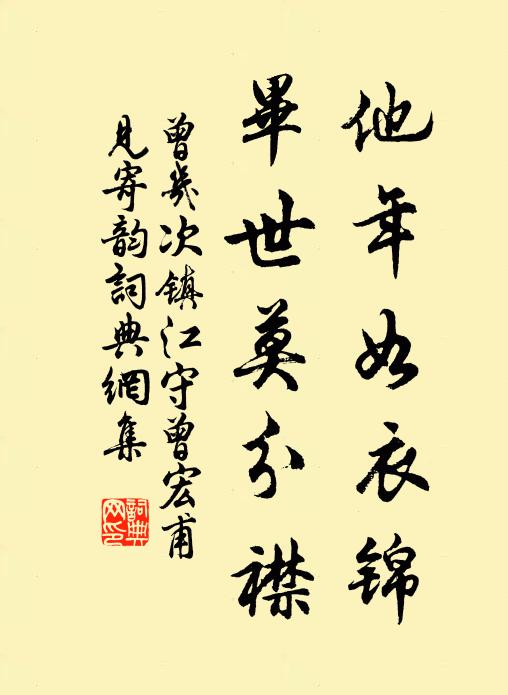 他年如衣錦
畢世莫分襟
曾幾次鎮江守曾宏甫
見寄韵詞典網集
詞典
网印